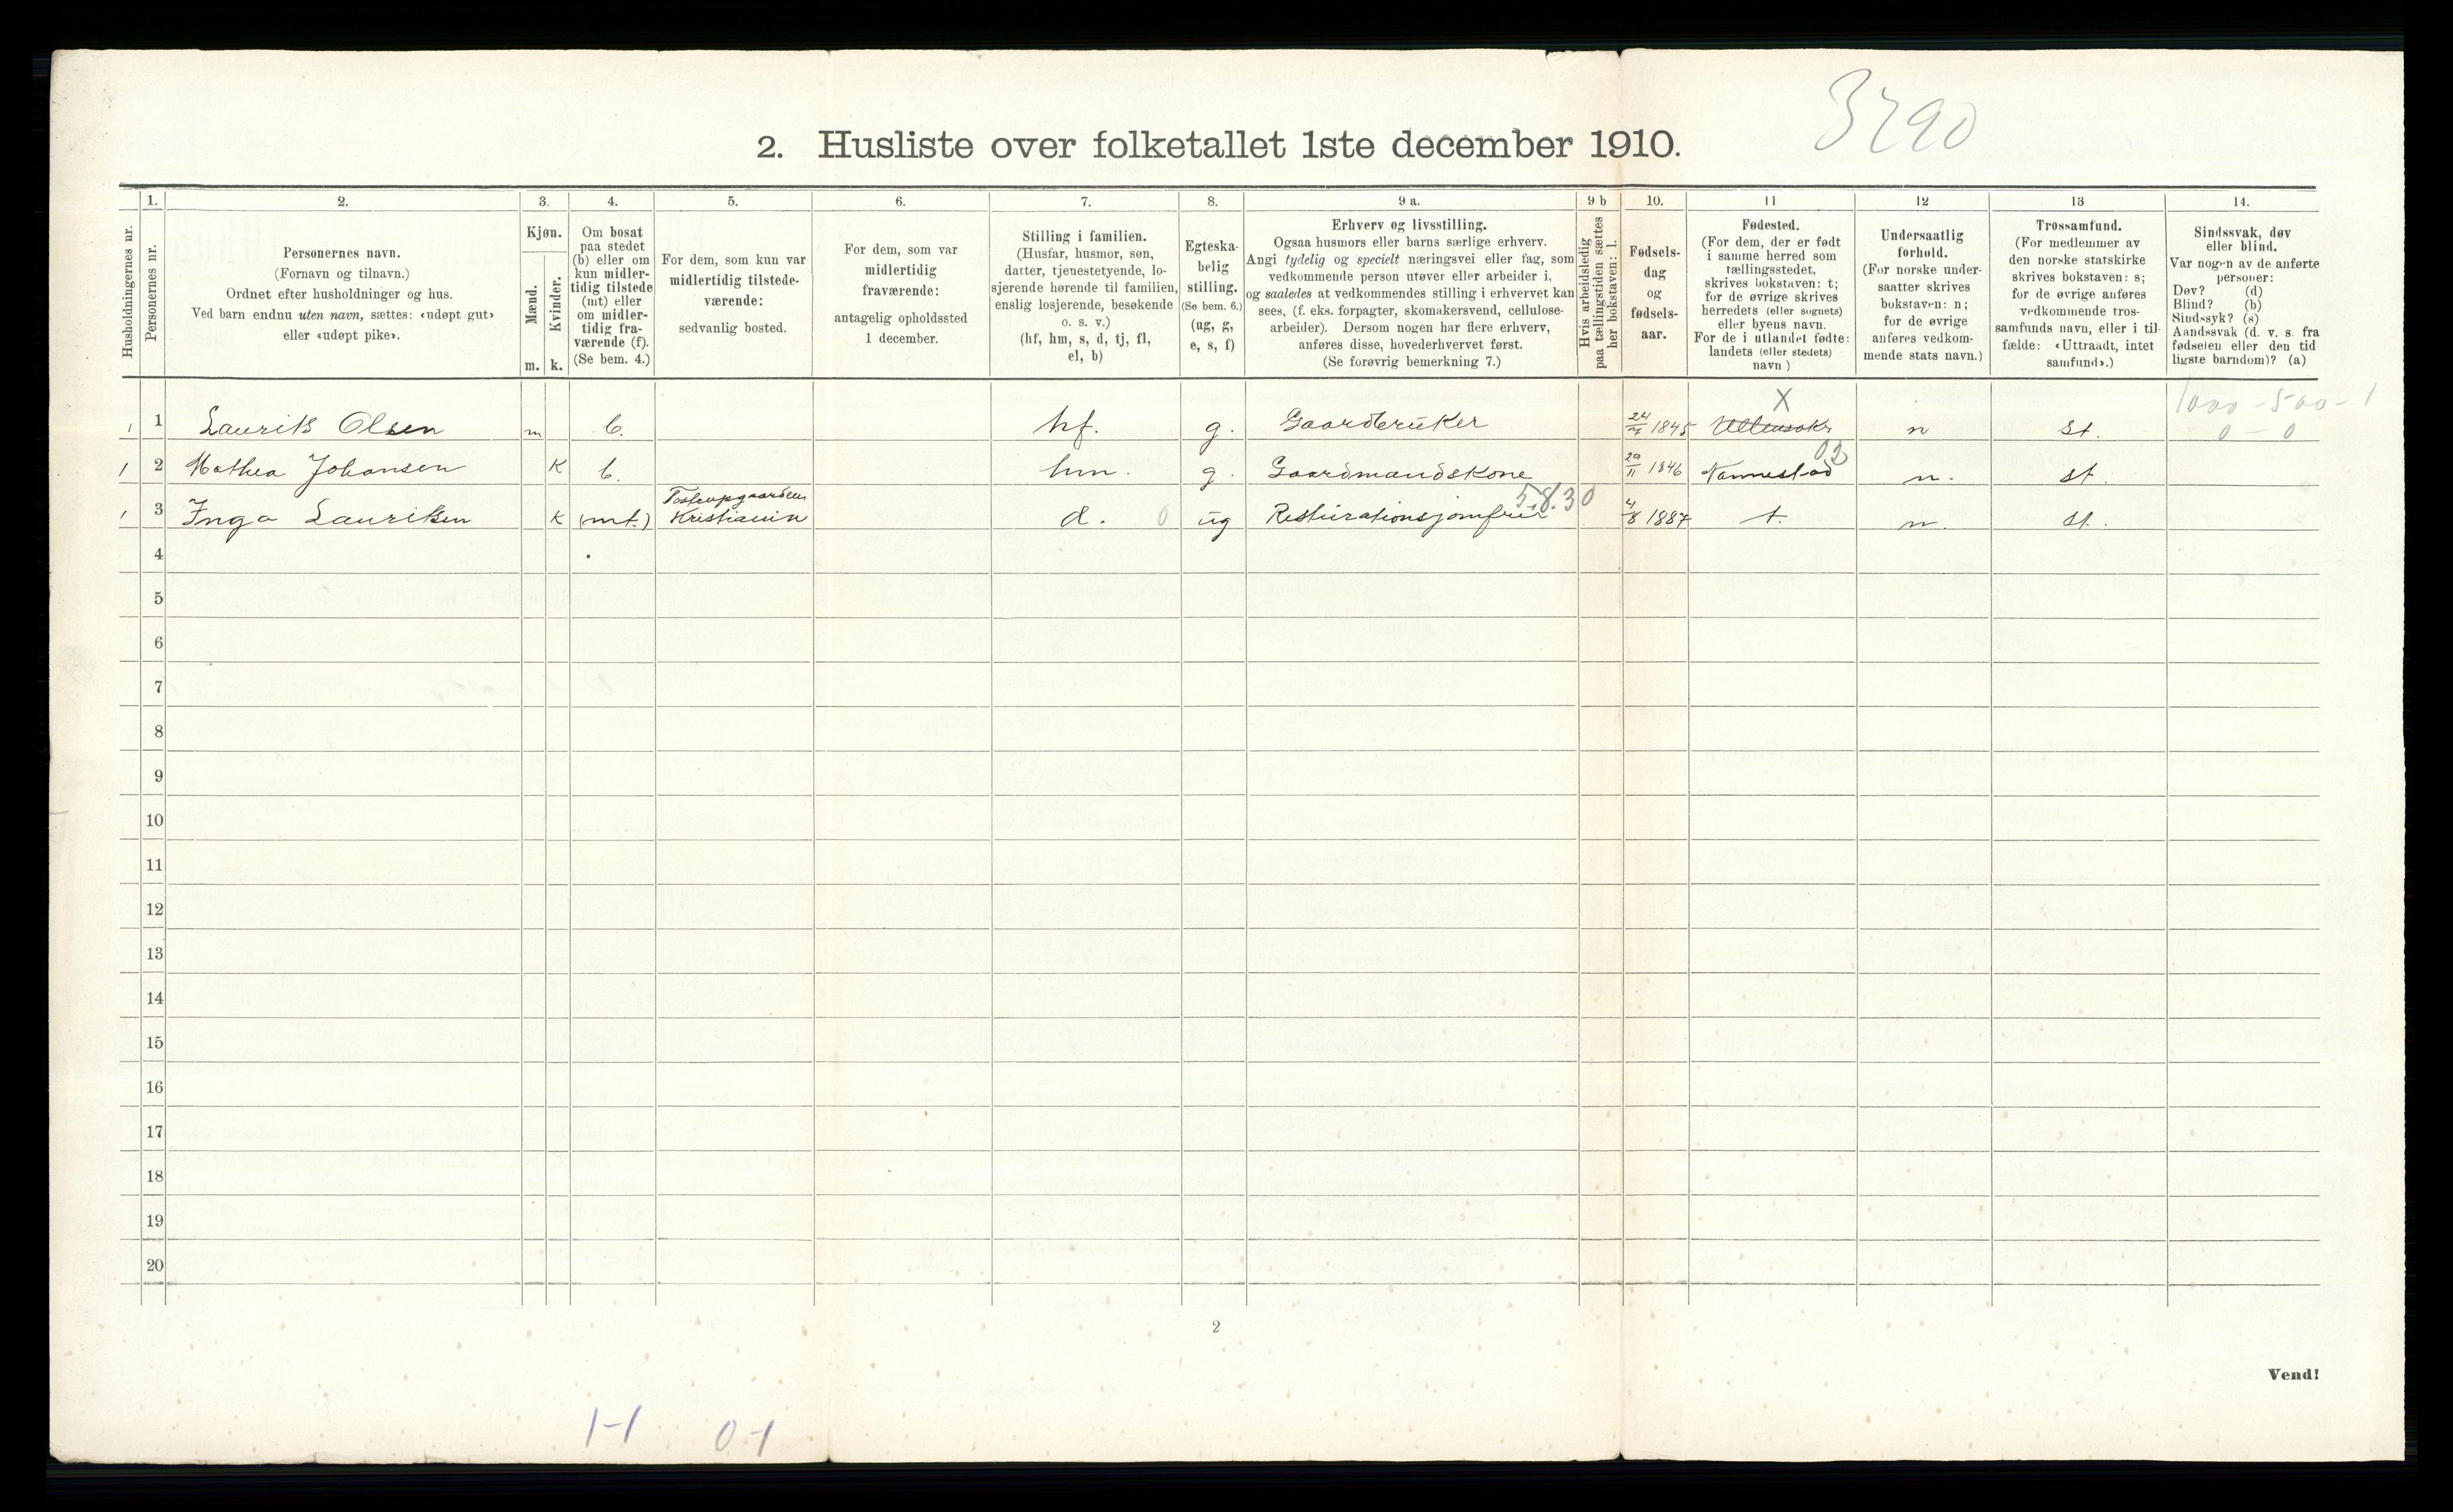 3290
2. Husliste over folketallet 1ste december 1910.
Husholdningernes nr.
1.
Personernes nr.
2.
Personernes navn.
(Fornavn og tilnavn.)
Ordnet efter husholdninger og hus.
Ved barn endnu uten navn, sættes: «udøpt gut»
eller «udøpt pike».
3.
Kjøn.
Mænd.
Kvinder.
m. k.
4.
Om bosat
paa stedet
(b) eller om
kun midler-
tidig tilstede
(mt) eller
om midler-
tidig fra-
værende (f).
(Se bem. 4.)
5.
For dem, som kun var
midlertidig tilstede-
værende:
sedvanlig bosted.
6.
For dem, som var
midlertidig
fraværende:
antagelig opholdssted
1 december.
7.
Stilling i familien.
(Husfar, husmor, søn,
datter, tjenestetyende, lo-
sjerende hørende til familien,
enslig losjerende, besøkende
o. s. v.)
(hf, hm, s, d, tj, fl,
el, b)
8.
Egteska-
belig
stilling.
(Se bem. 6.)
(ug, g,
e, s, f)
9 a.
Erhverv og livsstilling.
Ogsaa husmors eller barns særlige erhverv.
Angi tydelig og specielt næringsvei eller fag, som
vedkommende person utøver eller arbeider i,
og saaledes at vedkommendes stilling i erhvervet kan
sees, (f. eks. forpagter, skomakersvend, cellulose-
arbeider). Dersom nogen har flere erhverv,
anføres disse, hovederhvervet først.
(Se forøvrig bemerkning 7.)
9 b
Hvis arbeidsledig
paa tællingstiden sættes
her bokstaven: l.
10.
Fødsels-
dag
og
fødsels-
aar.
11
Fødested.
(For dem, der er født
i samme herred som
tællingsstedet,
skrives bokstaven: t;
for de øvrige skrives
herredets (eller sognets)
eller byens navn.
For de i utlandet fødte:
landets (eller stedets)
navn)
12
Undersaatlig
forhold.
(For norske under-
saatter skrives
bokstaven: n;
for de øvrige
anføres vedkom-
mende stats navn.)
13
Trossamfund.
(For medlemmer av
den norske statskirke
skrives bokstaven: s;
for de øvrige anføres
vedkommende tros-
samfunds navn, eller i til-
fælde: «Uttraadt, intet
samfund».)
14.
Sindssvak, døv
eller blind.
Var nogen av de anførte
personer:
Døv? (d)
Blind? (b)
Sindssyk? (s)
Aandssvak (d. v. s. fra
fødselen eller den tid
ligste barndom)? (a)
X 1000-500-1
1 1 Laurits Olsen m b. hf. g. Gaardbruker 24/7 1845 Ullensakr n st. 0-0
1 2 Mathea Johansen K b. hm. g. Gaardmandskone 29/11 1846 Nannestad 02 n. st.
Tostrupgaarden
1 3 Inga Lauritsen K (mt.) Kristiania d. 0 ug Resturationsjomfru 5.8.30 4/8 1887 t. n. st.
4
5
6
7
8
9
10
11
12
13
14
15
16
17
18
19
20
2
Vend!
1-1 0-1